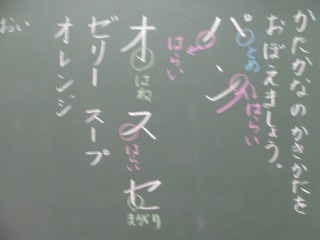 かたかなのかきかたを
おぼえましょう。
パン
とめ
はらい
はらい
オスセ
はね
はらい
まがり
ゼリー スープ
オレンジ
おい